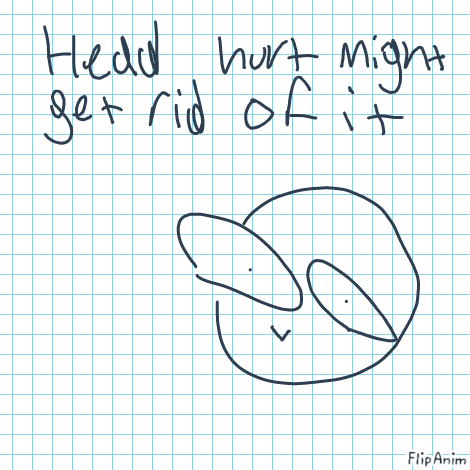 Head hurt might
get rid of it
FlipAnim